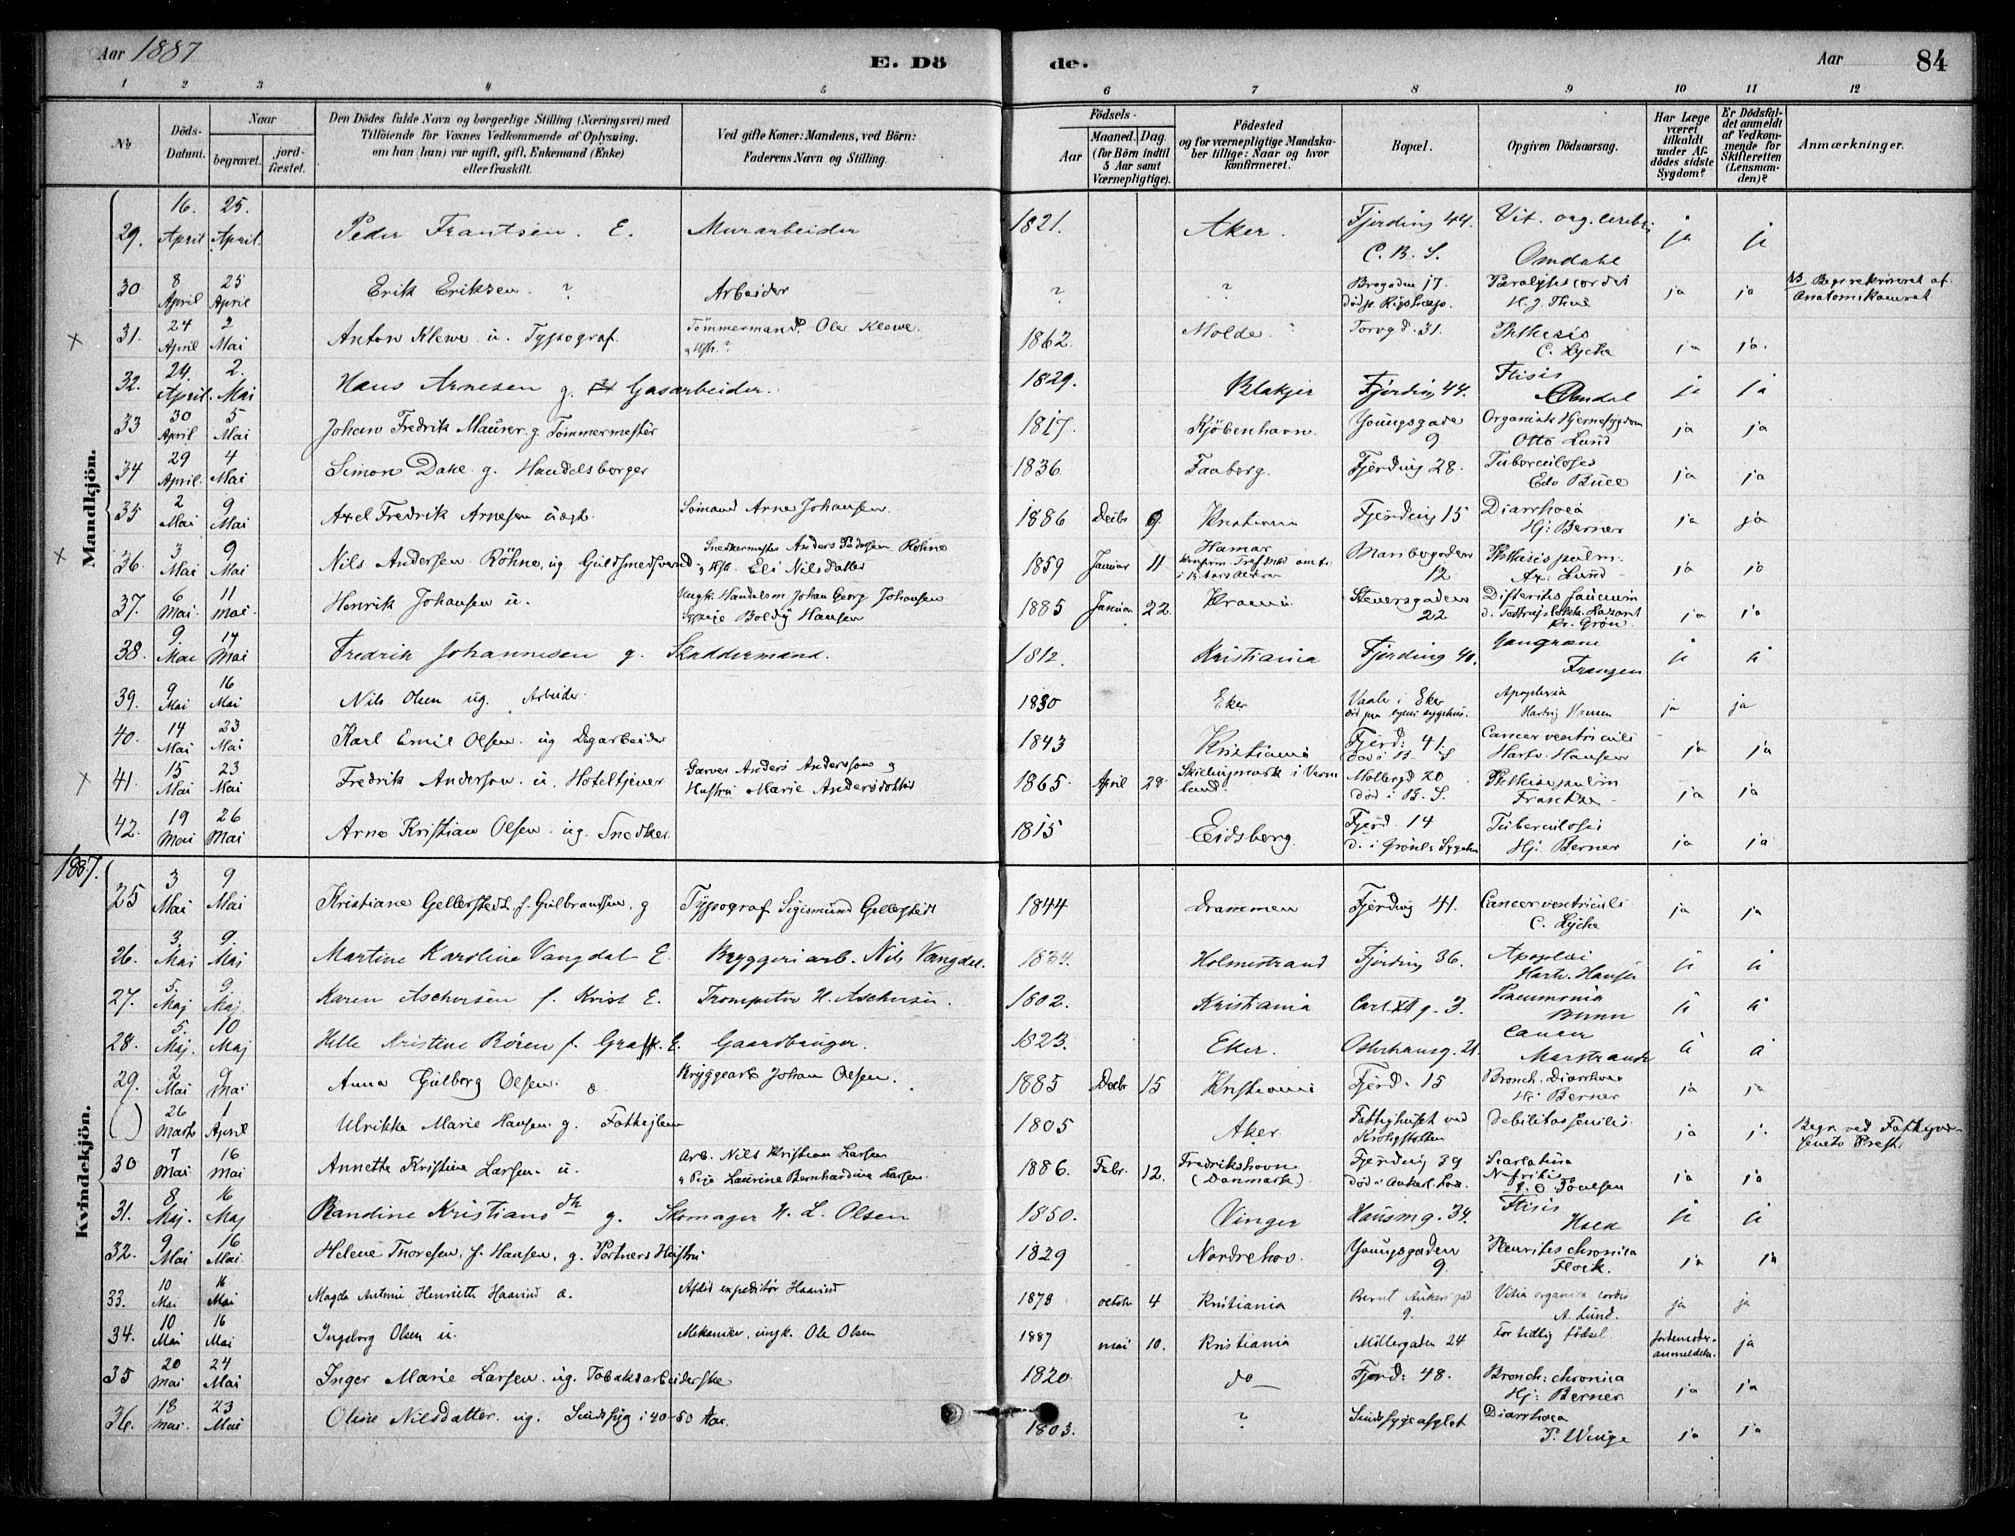 Aar 1887
E. Döde.
Aar
84
1 2 3 4 5 6 7 8 9 10 11 12
№
Döds-Datum.
Naar
begravet.
jordfæstet.
Den Dödes fulde Navn og borgerlige Stilling (Næringsvei) med
Tilföiende for Voxnes Vedkommende af Oplysning,
om han (hun) var ugift, gift, Enkemand (Enke)
eller fraskilt.
Ved gifte Koner: Mandens, ved Börn:
Faderens Navn og Stilling.
Födsels-
Aar
Maaned.
Dag.
(for Börn indtil
5 Aar samt
Værnepligtige).
Födested
og for værnepligtige Mandskaber tillige: Naar og hvor
konfirmeret.
Bopæl.
Opgiven Dödsaarsag.
Har Læge
været
tilkaldt
under Afdödes sidste
Sygdom?
Er Dödsfaldet anmeldt
af Vedkommende for
Skifteretten
(Lensmanden)?
Anmærkninger.
Mandkjön.
29. 16. April 25. April. Peder Frantsen. E. Murarbeider 1821. Aker. Fjerding 44. C. B. S. Vit. org. cerebri Omdahl ja ja
30 8 April 25 April Erik Eriksen ? Arbeider ? ? Brogaden 17 Paralysis cordis ja ja NB Begr rekvireret af Anatomikamret
31. 24 April 2 Mai Anton Klewe u. Typograf. Tömmermand Ole Klewe 1862. Molde Torvgd. 31. Phthisis C. Lycke ja ja.
32. 24. April. 2. Mai Hans Arnesen g. Gasarbeider. 1829. Blakjer Fjerding 44. Ftisis Omdal ja ja
33 30 April 5 Mai Johan Fredrik Maurer g. Tömmermester 1817. Kjöbenhavn. Youngsgade 9 Organisk Hjernesygdom Otto Lund ja ja
34 29 April. 4 Mai Simon Dahl g. Handelsborger 1836. Faaberg. Fjerding 28. Tuberculosis Edv Bull ja ja
35 2 Mai 9 Mai Axel Fredrik Arnesen uægt. Sömand Arne Johansen 1886 Decbr 9. Kristiania Fjerding 15 Diarrhoea Hj: Berner ja ja
36. 3 Mai 9 Mai Nils Andersen Röhne, ug. Guldsmedsvend Snedkermester Anders Pedersen Röhne Eli Nilsdatter 1859 Januar 11 Hamar 12 Phthisis pulm. Ax: Lund ja ja
37. 6 Mai. 11 Mai. Henrik Johansen u. Ungk: Handelsm Johan Georg Johansen Sypige Boldij Hansen 1885 Januar 22. Krania Stenersgaden 22 Difteritis faucium Kr. Grön. ja ja
38. 9. Mai 14 Mai Fredrik Johannesen g. Skaddermand. 1812. Kristiania Fjerding 40. Gangræne Franzen ja ja
39. 9 Mai 16 Mai Nils Olsen ug. Arbeider. 1830 Eker Eker Apoplexia Hartvig Hansen ja ja
40. 14 Mai 23 Mai Karl Emil Olsen. ug Dagarbeider 1843 Kristiania Fjerd: 41. Cancer ventriculi Hartv. Hansen ja ja
41. 15 Mai 23 Mai Fredrik Anderson. u. Hoteltjener Garver Anders Andersson og Hustru Marie Andersdotter 1865. April 28. Skillingmark i Vermland. Möllergd 20 död i B. S. Phthisis pulm Frantzen ja ja
42. 19 Mai 26 Mai Arne Kristian Olsen. ug. Snedker. 1815 Eidsberg. Fjerd. 14 d. i Grönl. Sygehus Tuberculosis Hj: Berner ja ja
1887.
Kvindekjön.
25 3 Mai 9 Mai Kristiane Gellerstedt f. Gulbrandsen, g Typograf Sigismund Gellerstedt 1844 Drammen Fjerding 41. Cancer ventriculi C. Lycke ja ja
26. 3. Mai 9. Mai Martine Karoline Vangdal E. Bryggeriarb. Nils Vangdal. 1834. Holmestrand Fjerding 36. Apoplexi Hartv. Hansen ja ja
27. 5. Maj 9. Maj. Karen Aschersen f. Krist E. Trompeter H. Aschersen. 1802. Kristiania Carl XII g. 3. Pneumonia Bunn ja ja
28. 5. Maj. 10 Maj Helle Kristine Rören f. Graff. E. Gaardbruger. 1823. Eker. Osterhausg. 21. Cancer Marstrander ja ja
29. 2 Mai 9 Mai Anna Gulborg Olsen. æ Bryggearb Johan Olsen. 1885 Decbr 15 Kristiania Fjerd. 15 Bronch. Diarrhoea Hj: Berner ja ja
() 26 Marts 1 April Ulrikke Marie Hansen g. Fattiglem 1805 Aker Fattighuset ved Debilitas senilis ja j. Begr. ved Fattigvæsenets Prest.
30 7 Mai 16 Mai Annette Kristine Larsen. u. Arb. Nils Kristian Larsen og Pige Laurine Bernhardine Larsen. 1886. Febr. 12. Fredrikshavn (Danmark). Fjerding 39 Scarlatina Nefritis Poulsen ja ja
31. 8. Maj. 16 Maj Randine Kristiansdtr g. Skomager H. L. Olsen 1850. Vinger Hausmg. 34. Ftisis Holm ja ja
32. 9 Mai 16 Mai. Helene Thoresen, f. Hansen, g. Portners Hustru 1829 Nordrehov. Youngsgaden 9. Pleuritis chronica Floik. ja ja
33. 10 Mai 16 Mai Magda Antonie Henriette Haavind æ. Afdöd expeditör Haavind 1878 october 4 Kristiania Bernt Ankers gad 9. Vitia organica cordis A. Lund. ja ja
34. 10 Mai 16 Mai Ingeborg Olsen u. Mekaniker, ungk. Ole Olsen 1887 mai 10. Kristiania Möllergaden 24 For tidlig födsel. Jordemoderanmeldelse. ja
35 20 Mai 24 Mai Inger Marie Larsen. ug. Tobaksarbeiderske 1820 do Fjerd: 48. Bronch: chronica Hj: Berner ja ja
36. 18 Mai. 23 Mai Oline Nilsdatter. ug. Sindssyg i 40-50 Aar. 1803. ? Sindssygeasylet Diarrhoea P. Winge ja ja